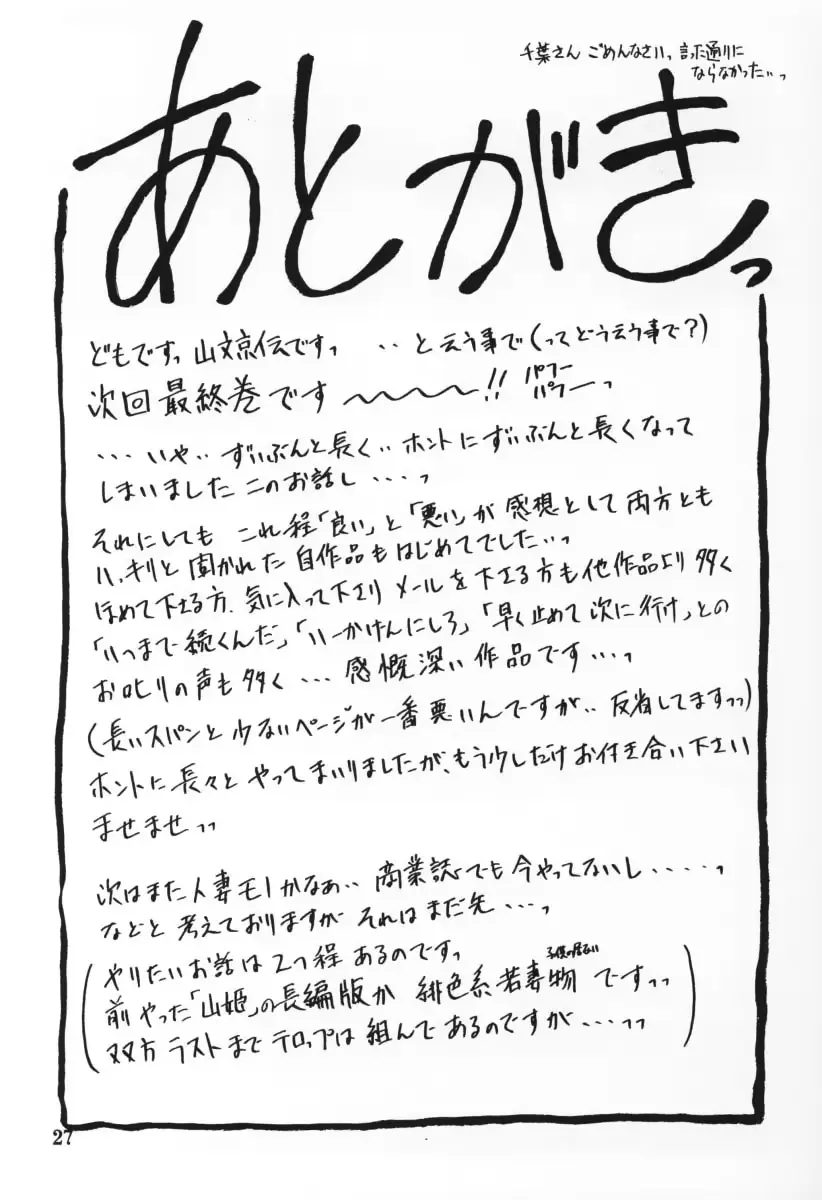 千葉さん ごめんなさいっ 言った通りに
ならなかった…っ
あとがきっ
どもですっ 山文京伝ですっ ‥と云う事で(ってどう云う事で?)
次回最終巻です〜〜〜〜!! パフー
パフーっ
‥‥いや‥ずいぶんと長く‥ホントにずいぶんと長くなって
しまいましたこのお話し‥‥っ
それにしても これ程「良い」と「悪い」が感想として両方とも
ハッキリと聞かれた自作品もはじめてでした…っ
ほめて下さる方、気に入って下さりメールを下さる方も他作品より多く
「いつまで続くんだ」「いーかげんにしろ」「早く止めて次に行け」との
お叱りの声も多く…感慨深い作品です…っ
(長いスパンと少ないページが一番悪いんですが‥反省してますっっ)
ホントに長々とやってまいりましたが、もう少しだけお付き合い下さい
ませませっっ
次はまた人妻モノかなぁ‥商業誌でも今やってないし‥‥‥っ
などと考えておりますがそれはまだ先…っ
(やりたいお話は2つ程あるのですっ
子供の居ない
前やった「山姫」の長編版か 緋色系若妻物ですっっ
双方ラストまでテロップは組んであるのですが‥‥っっ)
27